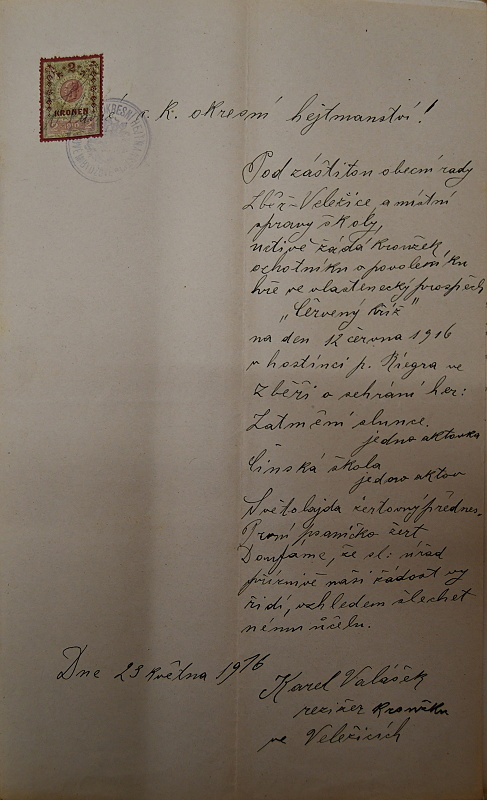 2
KRONEN
c. k. okresní hejtmanství!
Pod záštitou obecní rady
Zběř-Veležice, a místní
správy školy,
uctivě žádá kroužek
ochotníků o povolení ku
hře ve vlastenecký prospěch
„Červený kříž"
na den 12 června 1916
v hostinci p. Riegra ve
Zběři o sehrání her:
Zatmění slunce.
jedno aktovka
Čínská škola
jedno aktov
Světoběžda žertovný přednes.
První psaníčko žert
Doufáme, že sl: úřad
příznivě naši žádost vy
řídí, vzhledem šlechet
nému účelu.
Dne 23 května 1916
Karel Valášek
režižer kroužku
ve Veležicích